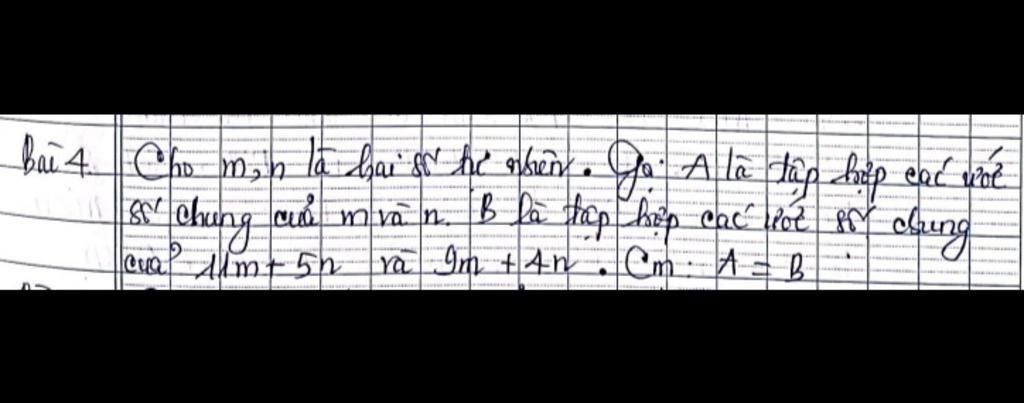 Bài 4. Cho m, n là hai số tự nhiên. Gọi A là tập hợp các ước
số chung của m và n. B là tập hợp các ước số chung
của 11m + 5n và 9m + 4n. Cm: A = B